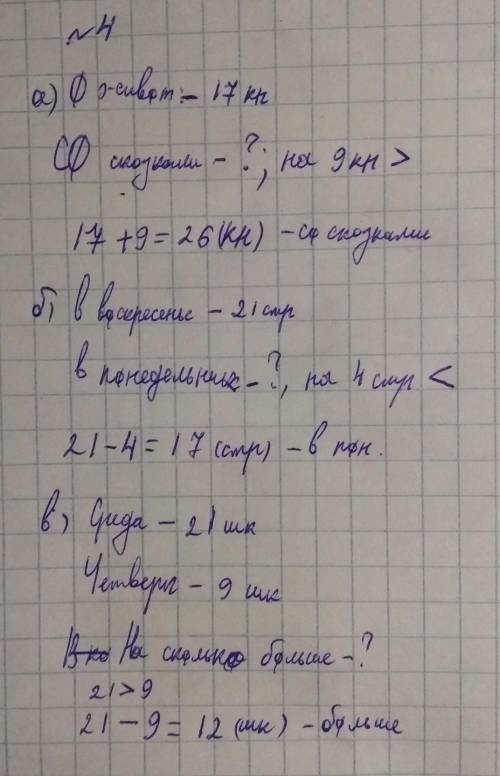 №4
а) О живот. - 17 кн
СО сказками - ?; на 9 кн >
17 + 9 = 26 (кн) - со сказками
б) В воскресенье - 21 стр
в понедельник - ?, на 4 стр <
21 - 4 = 17 (стр) - в пон.
в) Среда - 21 шк
Четверг - 9 шк
На сколько больше - ?
21 > 9
21 - 9 = 12 (шк) - больше